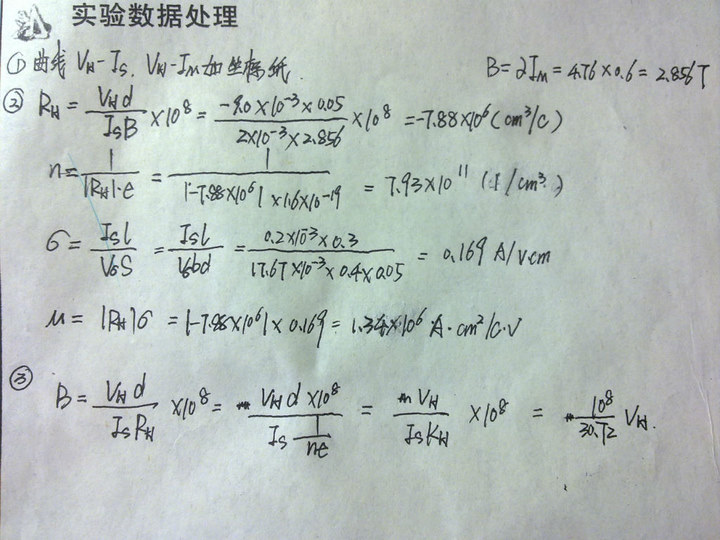 实验数据处理
① 曲线 V_H-I_S, V_H-I_M 如坐标纸. B=2I_M=4.76×0.6=2.856T
② R_H = V_H d / I_S B ×10^8 = -9.0×10^-3×0.05 / 2×10^-3×2.856 ×10^8 = -7.88×10^6 (cm^3/c)
n = 1 / |R_H|·e = 1 / |-7.88×10^6|×1.6×10^-19 = 7.93×10^11 (1/cm^3)
σ = I_S l / V_σ S = I_S l / V_σ bd = 0.2×10^-3×0.3 / 17.67×10^-3×0.4×0.05 = 0.169 A/v·cm
μ = |R_H|σ = |-7.88×10^6|×0.169 = 1.34×10^6 A·cm^2/c·V
③ B = V_H d / I_S R_H ×10^8 = V_H d×10^8 / I_S 1/ne = V_H / I_S K_H ×10^8 = 10^8 / 30.72 V_H.